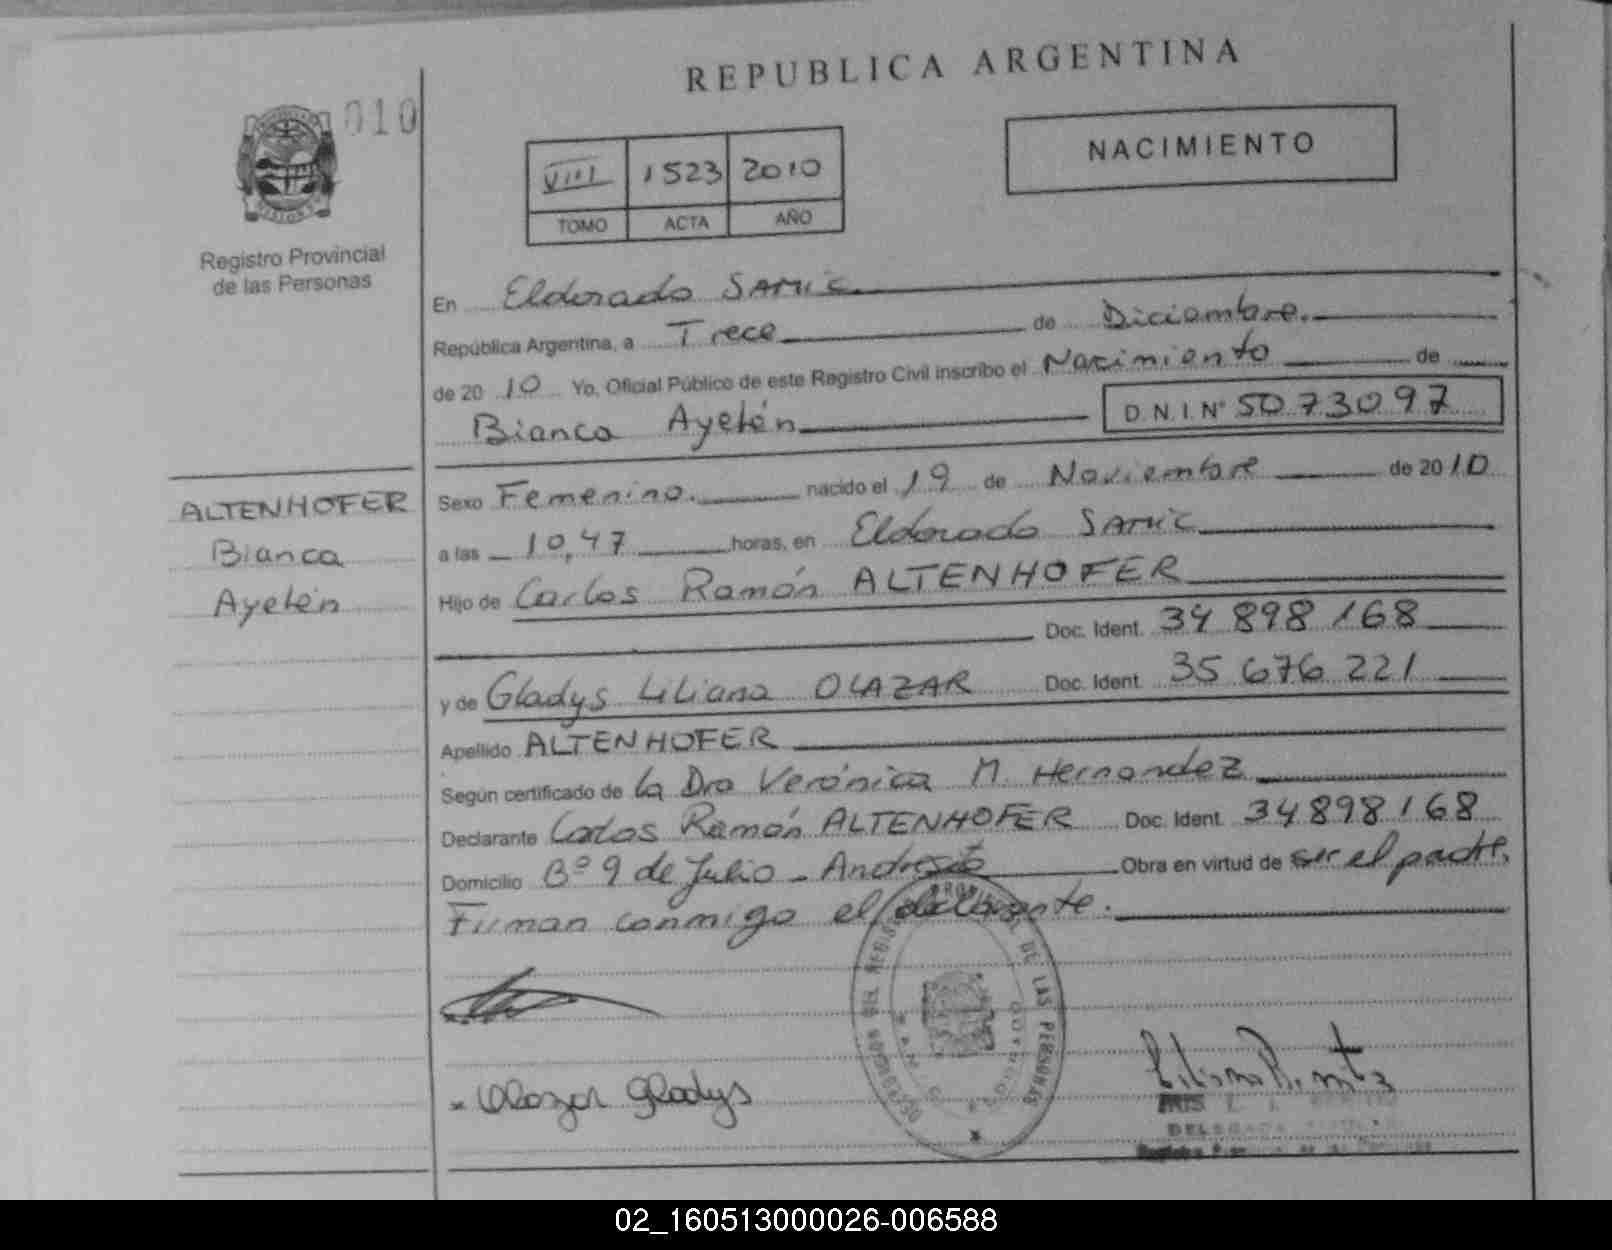 REPUBLICA ARGENTINA
010
NACIMIENTO
VIII 1523 2010
TOMO ACTA AÑO
Registro Provincial
de las Personas
En Eldorado SAMIC
República Argentina, a Trece de Diciembre.
de 20 10 Yo, Oficial Público de este Registro Civil inscribo el Nacimiento de
Bianca Ayelén D.N.I. N° 50 73097
ALTENHOFER
Bianca
Ayelén
Sexo Femenino. nacido el 19 de Noviembre de 20 10
a las 10,47 horas, en Eldorado SAMIC
Hijo de Carlos Ramón ALTENHOFER
Doc. Ident. 34 898 168
y de Gladys Liliana OLAZAR Doc. Ident. 35 676 221
Apellido ALTENHOFER
Según certificado de la Dra Verónica M. Hernandez
Declarante Carlos Ramón ALTENHOFER Doc. Ident. 34898168
Domicilio Bº 9 de Julio - Obra en virtud de ser el padre,
Firman conmigo el declarante.
Olazar Gladys
REGISTRO PROVINCIAL DE LAS PERSONAS
02_160513000026-006588